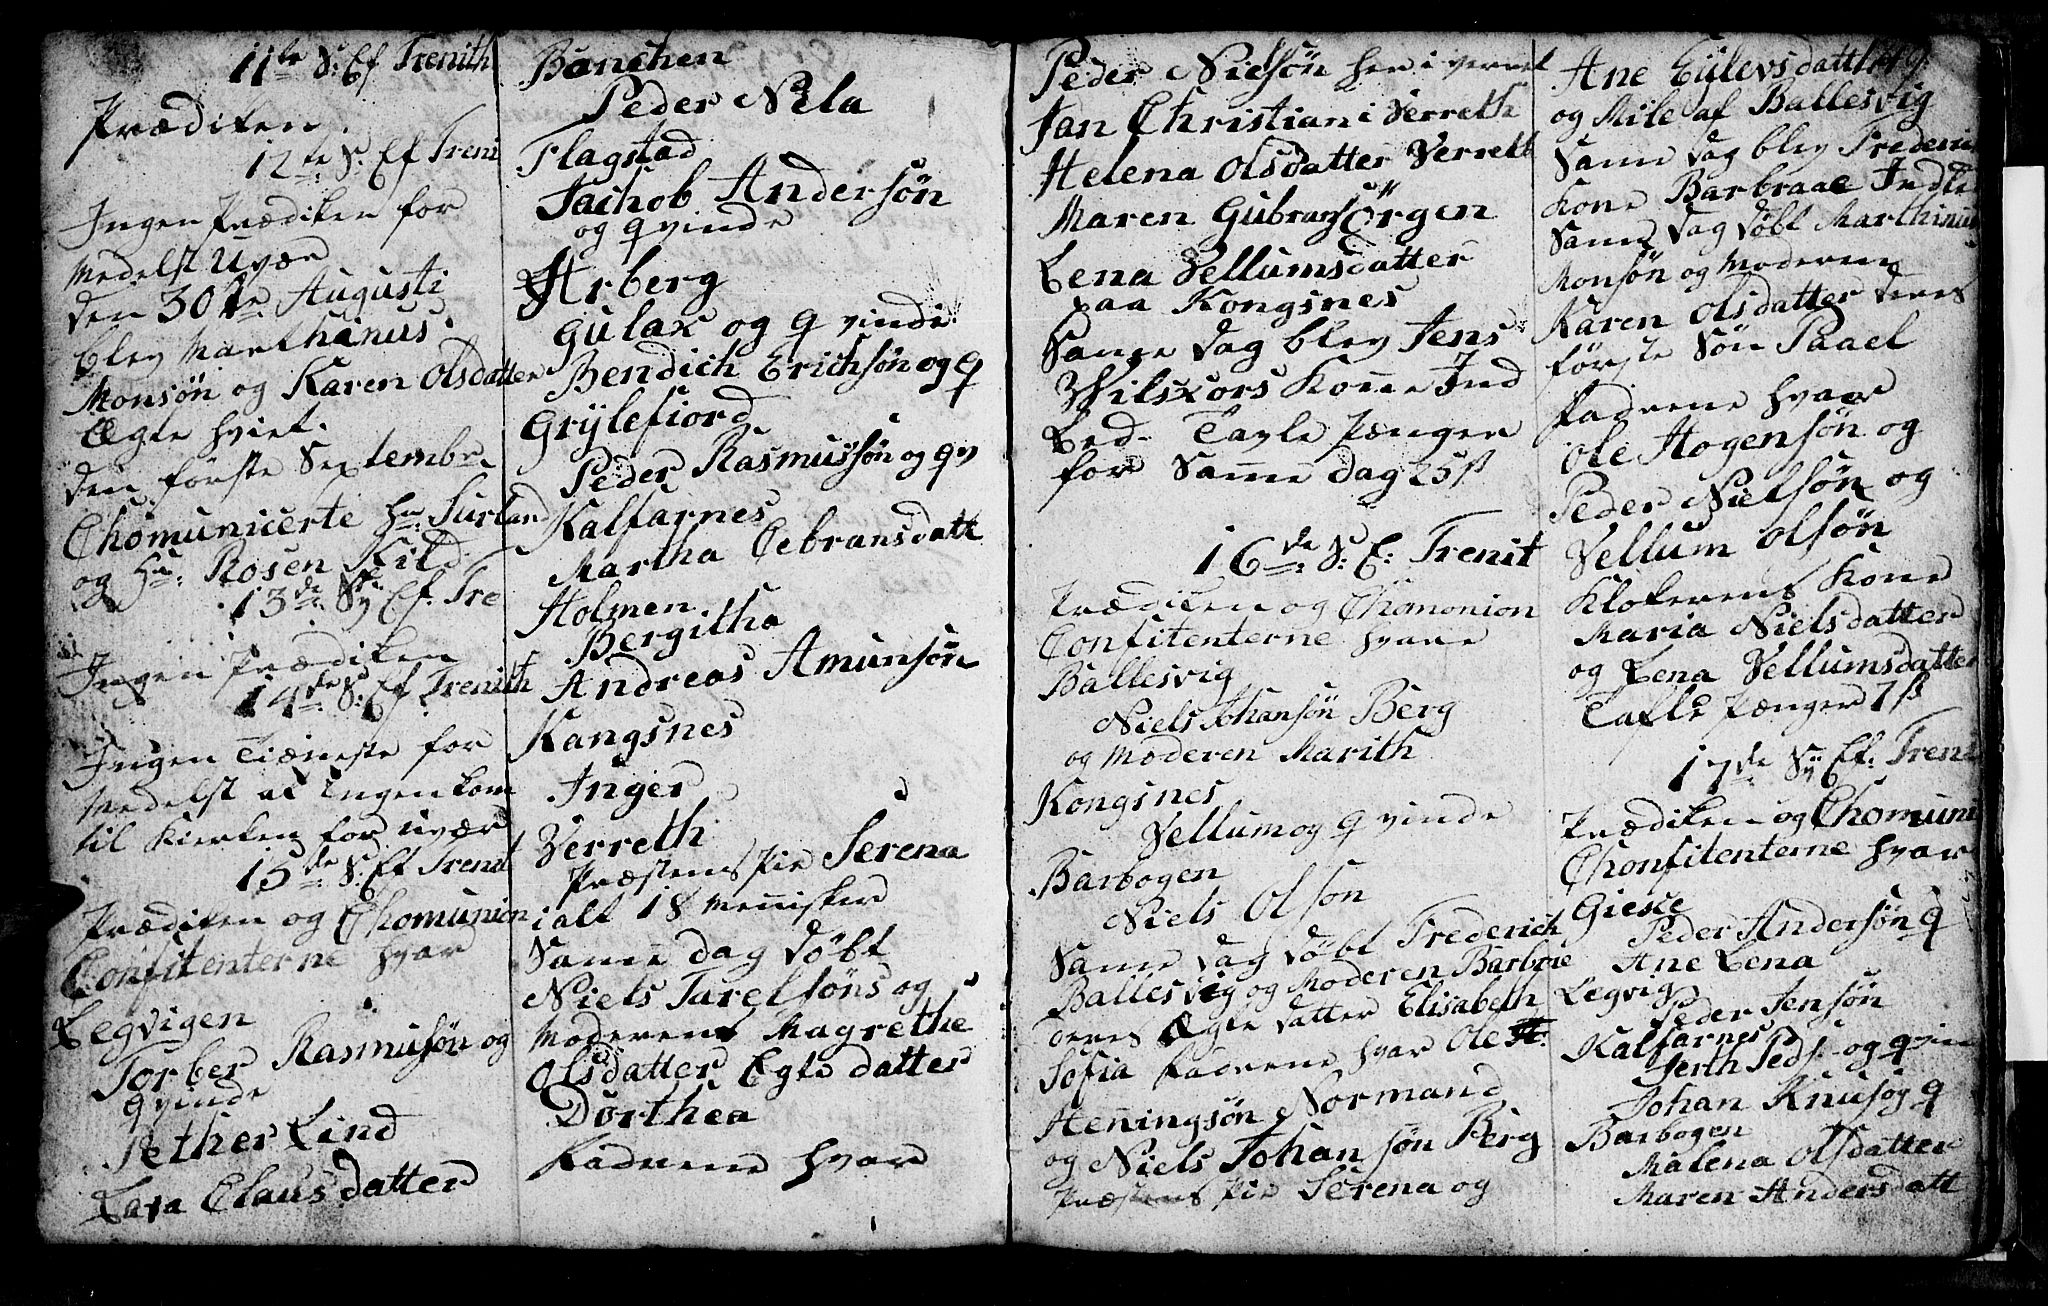 11te S: Ef Trenith
Prædiken
12te S: Ef Treni
Ingen Prædiken for
Medelst Uvær
den 30te Augusti
blev Marthinus
Monsøn og Karen Olsdatter
Egte Hviet.
den første Septembr
Chomunicerte Hr Surland
og Hr: Rosen Kild
13de Sy Ef. Tre
Ingen Prædiken
14de S: Ef Trenith
Ingen Tiæneste for
Medelst at Ingen kom
til Kierken for uvær
15de S: Ef Trenit
Prædiken og Chomunion
Confitenterne hvar
Legvigen
Torber Rasmusøn og
qvinde
Pether Lind
Lava Clausdatter
Banchen
Peder Nila
Flagstad
Jachob Andersøn
og qvinde
Arberg
Gulax og qvinde
Bendich Erichsøn og q
Grylefiord
Peder Rasmusøn og qv
Kalfarnes
Martha Gebransdatt
Holmen
Bergitha
Andreas Amunsøn
Kangsnes
Inger
Verreth
Præstens Pie Serena
i alt 18 Menisker
Samme dag døbt
Niels Tarelsøns og
Moderens Magrethe
Olsdatter Egte datter
Dorthea
Fadrene hvar
Peder Nielsøn her i verret
Jan Christian i Verreth
Helena Olsdatter Verreth
Maren Gubrans Ørgen
Lena Vellumsdatter
paa Kongsnes
Same dag blev Jens
Wilskors Kone Ind
Led. Tavle Penger
for Same dag 25 ß
16de S: E: Trenit
Prædiken og Chomonion
Confitenterne hvare
Ballesvig
Niels Johansøn Berg
og Moderen Marith
Kongsnes
Vellum og qvinde
Barbogen
Niels Olson
Same dag døbt Frederich
Ballesvig og Moderen Barbroe
deres Egte datter Elisabeth
Sofia Fadrene hvar Ole
Heningsøn Normand
og Niels Johansøn Berg
Præstens Pie Serena og
Ane Eylevsdatt 119.
og Mile af Ballesvig
Same dag blev Frederic
Kone Barbraae Indle
Same dag døbt Marthinus
Monsøn og Moderen
Karen Olsdatter deres
første Søn Paael
Fadrene hvar
Ole Hogensøn og
Peder Nielsøn og
Vellum Olsøn
Klokerens Kone
Maria Nielsdatter
og Lena Vellumsdatter
Tafle Penger 7 ß
17de Sy Ef: Treni
Prædiken og Chomuni
Chonfitenterne hvar
Giesce
Peder Andersøn q
Ane Lena
Legvig
Peder Jensøn
Kalfarnes
og qvin
Johan Knus og q
Barbogen
Malena Olsdatter
Maren Andersdatt